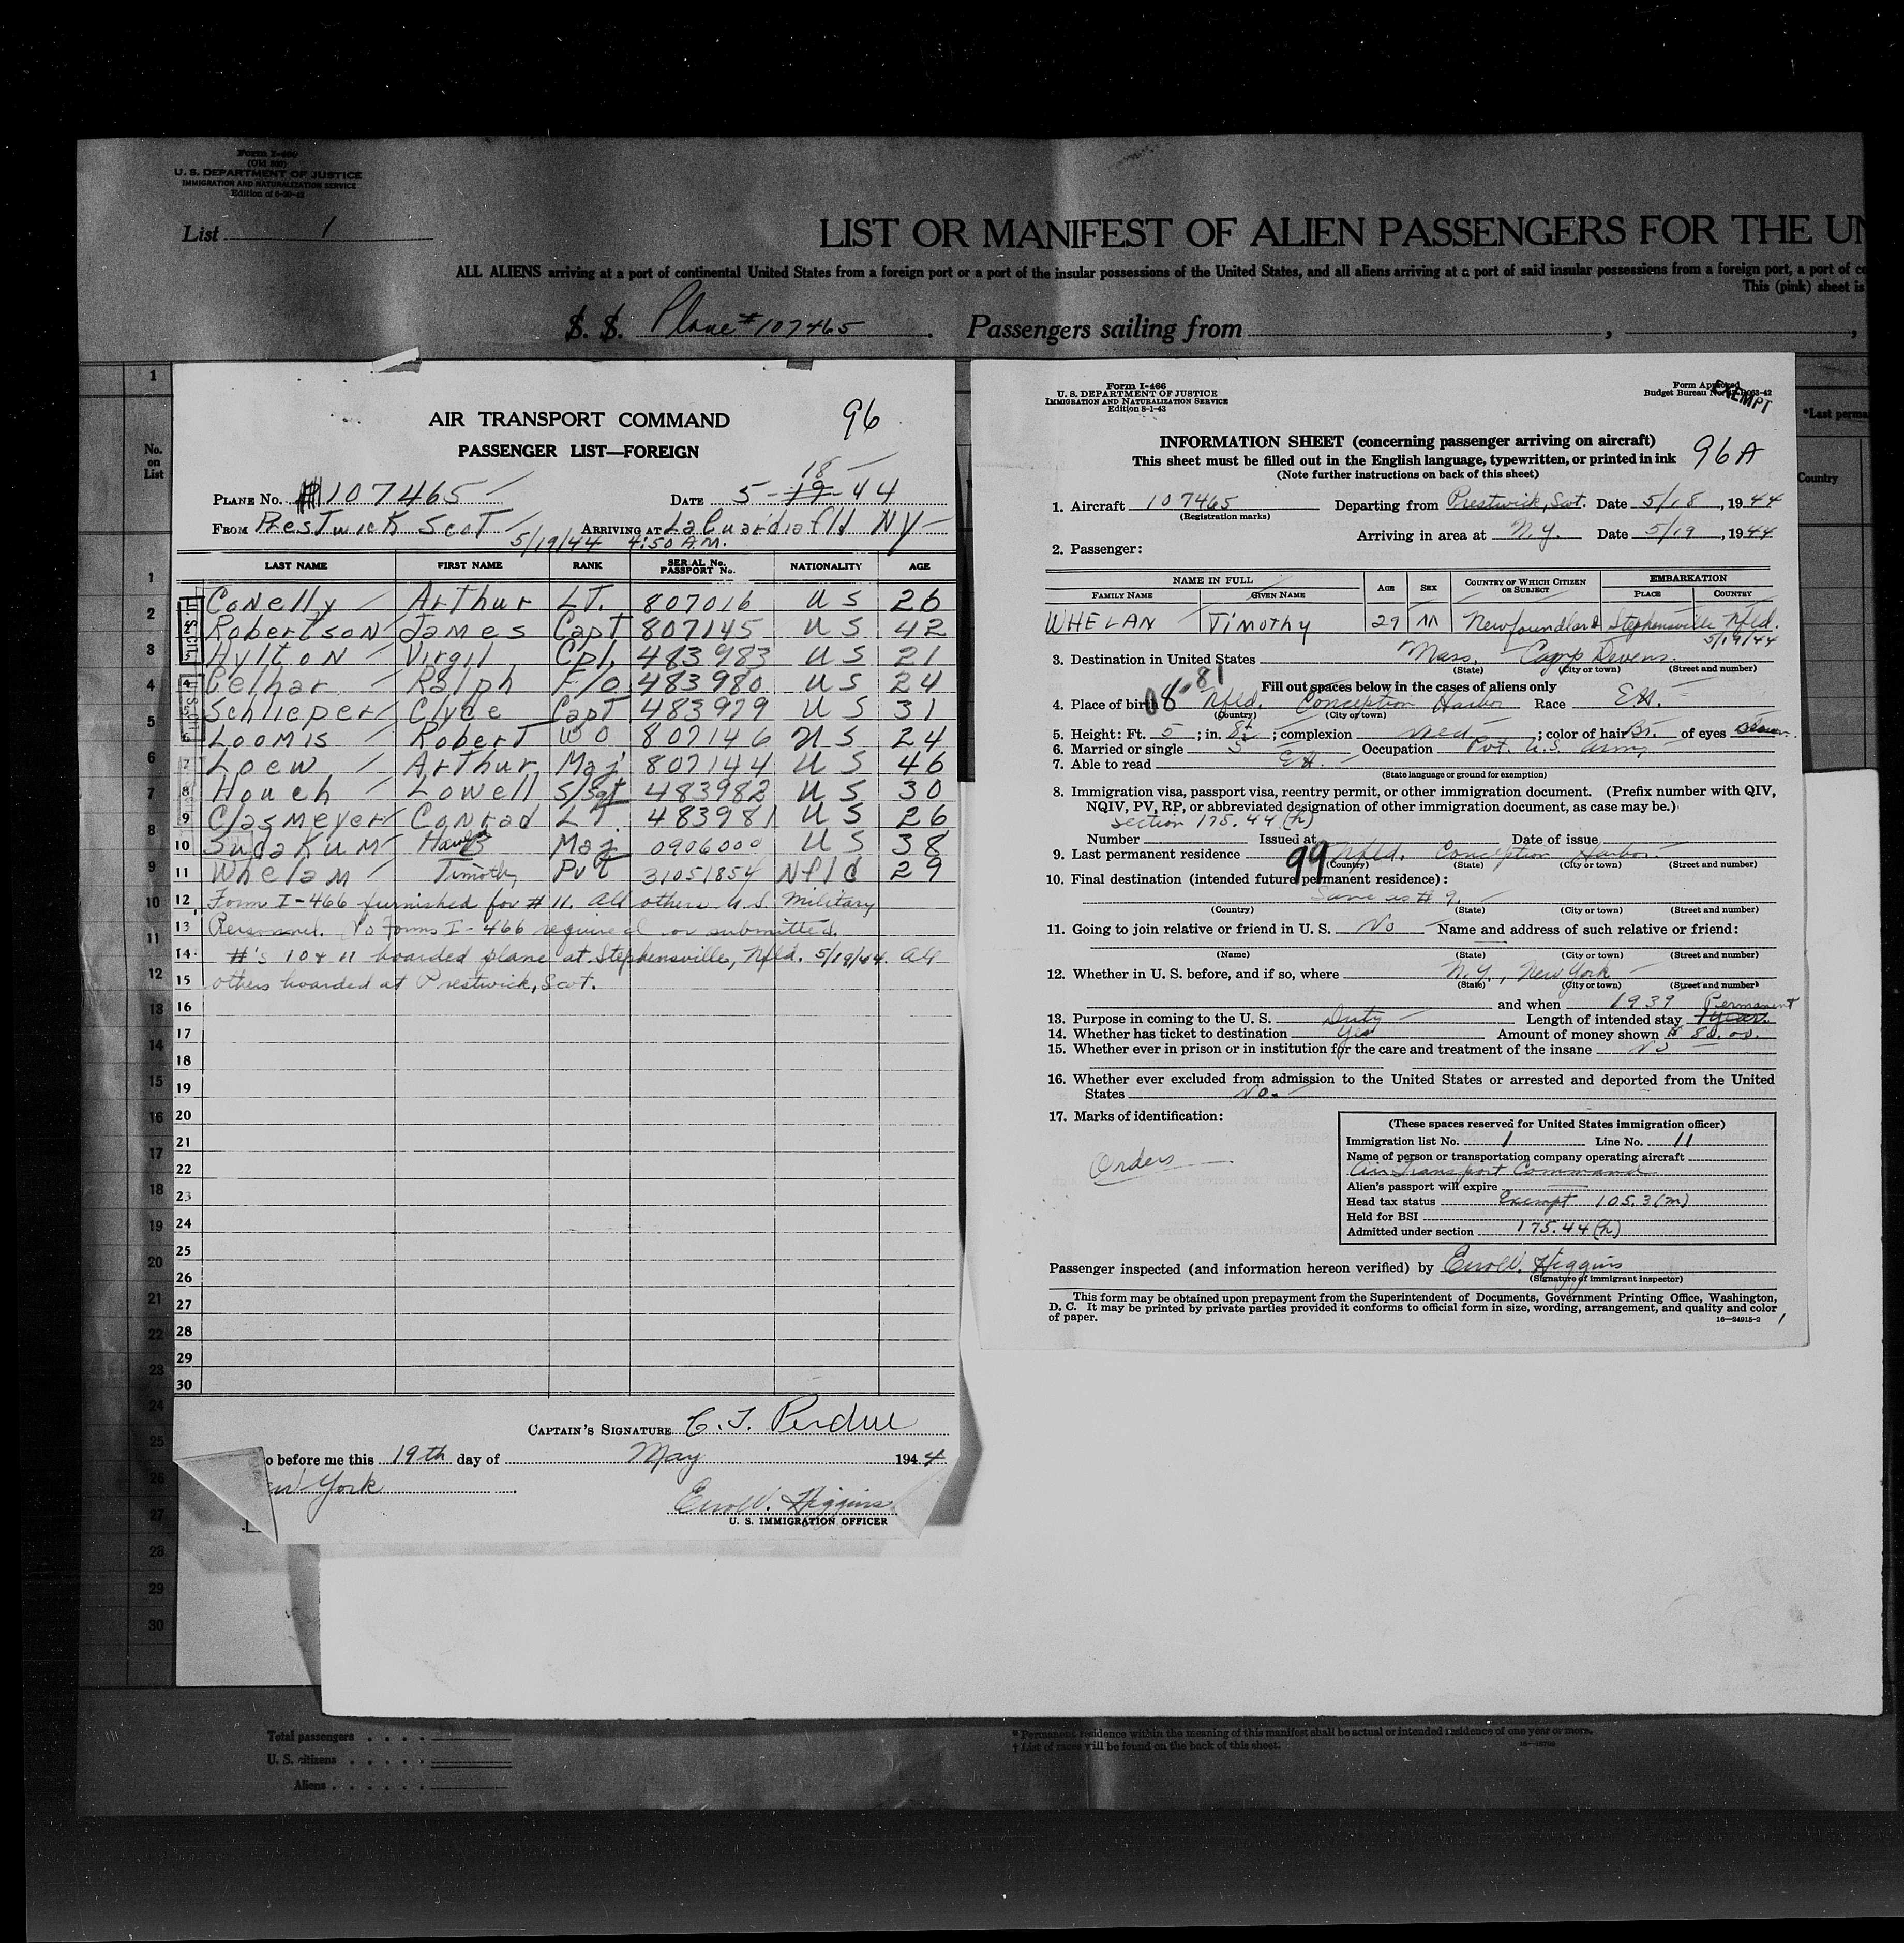 Form I-466
(Old 500)
U. S. DEPARTMENT OF JUSTICE
IMMIGRATION AND NATURALIZATION SERVICE
List 1
LIST OR MANIFEST OF ALIEN PASSENGERS FOR THE UN
ALL ALIENS arriving at a port of continental United States from a foreign port or a port of the insular possessions of the United States, and all aliens arriving at a port of said insular possessions from a foreign port, a port of co
This (pink) sheet is
S. S. Plane #107465 Passengers sailing from
No. on List
AIR TRANSPORT COMMAND 96
PASSENGER LIST—FOREIGN
PLANE No. 107465 DATE 5-19-44 18
FROM Prestwick Scot ARRIVING AT LaGuardia fld NY
5/19/44 4:50 A.M.
LAST NAME FIRST NAME RANK SERIAL No. PASSPORT No. NATIONALITY AGE
1 Conelly Arthur LT. 807016 U S 26
2 Robertson James Capt 807145 U S 42
3 Hylton Virgil Cpl. 483983 U S 21
4 Celhar Ralph F/O 483980 U S 24
5 Schlieper Clyde Capt 483979 U S 31
6 Loomis Robert WO 807146 U S 24
7 Loew Arthur Maj 807144 U S 46
8 Houch Lowell S/Sgt 483982 U S 30
9 Clasmeyer Conrad LT. 483981 U S 26
10 Sudakum Maj 0906000 U S 38
11 Whelam Timothy Pvt 31051854 Nfld 29
12 Form I-466 furnished for #11. All others U.S. Military
13 Personnel. No Forms I-466 required or submitted.
14 #'s 10 & 11 boarded plane at Stephensville, Nfld. 5/19/44. All
15 others boarded at Prestwick, Scot.
16
17
18
19
20
21
22
23
24
25
26
27
28
29
30
CAPTAIN'S SIGNATURE C. J. Perdue
o before me this 19th day of May 1944
ew York
Errol W. Higgins
U. S. IMMIGRATION OFFICER
Form I-466
U. S. DEPARTMENT OF JUSTICE
IMMIGRATION AND NATURALIZATION SERVICE
Edition 8-1-43
Form Approved
Budget Bureau No.
EXEMPT
INFORMATION SHEET (concerning passenger arriving on aircraft)
This sheet must be filled out in the English language, typewritten, or printed in ink 96A
(Note further instructions on back of this sheet)
1. Aircraft 107465 Departing from Prestwick, Scot. Date 5/18, 1944
(Registration marks)
Arriving in area at N.Y. Date 5/19, 1944
2. Passenger:
NAME IN FULL AGE SEX COUNTRY OF WHICH CITIZEN OR SUBJECT EMBARKATION
FAMILY NAME GIVEN NAME PLACE COUNTRY
WHELAN Timothy 29 M Newfoundland Stephensville Nfld.
5/19/44
3. Destination in United States Mass. Camp Devens
(State) (City or town) (Street and number)
08-81
Fill out spaces below in the cases of aliens only
4. Place of birth Nfld. Conception Harbor Race
(Country) (City or town)
5. Height: Ft. 5; in. 8½; complexion Med.; color of hair Br. of eyes
6. Married or single S Occupation Pvt. U.S. Army
7. Able to read
(State language or ground for exemption)
8. Immigration visa, passport visa, reentry permit, or other immigration document. (Prefix number with QIV,
NQIV, PV, RP, or abbreviated designation of other immigration document, as case may be.)
Section 175.44 (h)
Number Issued at Date of issue
9. Last permanent residence 99 Nfld. Conception Harbor
(Country) (State) (City or town) (Street and number)
10. Final destination (intended future permanent residence):
Same as # 9.
(Country) (State) (City or town) (Street and number)
11. Going to join relative or friend in U. S. No Name and address of such relative or friend:
(Name) (State) (City or town) (Street and number)
12. Whether in U. S. before, and if so, where N.Y., New York
(State) (City or town) (Street and number)
and when 1939 Permanent
13. Purpose in coming to the U. S. Duty Length of intended stay 1 year.
14. Whether has ticket to destination Yes Amount of money shown $ 80.00.
15. Whether ever in prison or in institution for the care and treatment of the insane No
16. Whether ever excluded from admission to the United States or arrested and deported from the United
States No.
17. Marks of identification:
Orders
(These spaces reserved for United States immigration officer)
Immigration list No. 1 Line No. 11
Name of person or transportation company operating aircraft
Air Transport Command
Alien's passport will expire
Head tax status Exempt 105.3 (m)
Held for BSI
Admitted under section 175.44 (h)
Passenger inspected (and information hereon verified) by Errol W. Higgins
(Signature of immigrant inspector)
This form may be obtained upon prepayment from the Superintendent of Documents, Government Printing Office, Washington,
D. C. It may be printed by private parties provided it conforms to official form in size, wording, arrangement, and quality and color
of paper. 16—24915-2
*Last perma
Country
Total passengers
U. S. citizens
Aliens
* Permanent residence within the meaning of this manifest shall be actual or intended residence of one year or more.
† List of races will be found on the back of this sheet.